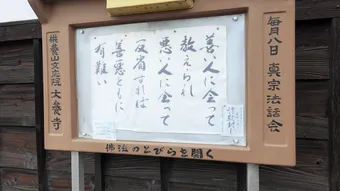 毎月八日 真宗法話会
善い人に会って
教えられ
悪い人に会って
反省すれば
善悪ともに
有難い
大養寺
佛法のとびらを開く